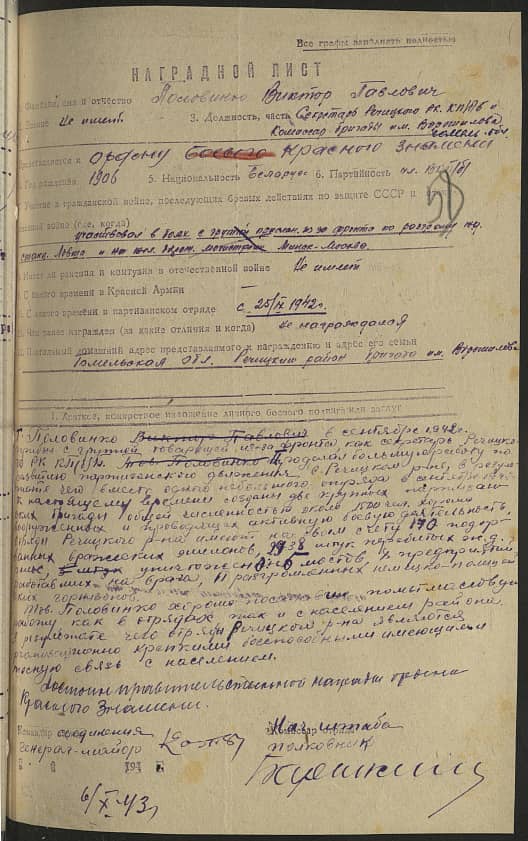 Все графы заполнять полностью
НАГРАДНОЙ ЛИСТ
Фамилия, имя и отчество Половинко Виктор Павлович
Звание Не имеет 3. Должность, часть Секретарь Речицкого РК КП/б/б и
Комиссар бригады им. Ворошилова
Гомельск. обл.
Представляется к Ордену боевого Красного Знамени
Год рождения 1906 5. Национальность Беларус 6. Партийность чл. ВКП/б/
50
Участие в гражданской войне, последующих боевых действиях по защите СССР и
отечественной войне (где, когда)
участвовал в боях с группой
Минск-Москва.
Имеет ли ранения и контузии в отечественной войне Не имеет
С какого времени в Красной Армии
С какого времени в партизанском отряде с 25/IX 1942 г.
Чем ранее награжден (за какие отличия и когда) не награждался
Постоянный домашний адрес представляемого к награждению и адрес его семьи
Гомельская обл. Речицкий район бригада им. Ворошилова
1. Краткое, конкретное изложение личного боевого подвига или заслуг
Т. Половинко Виктор Павлович в сентябре 1942 г.
с группой товарищей из-за фронта как секретарь Речицко-
го РК КП/б/Б. Тов. Половинко проделал большую работу по
развитию партизанского движения в Речицком р-не, в резуль-
тате чего вместо одного небольшого отряда в сентябре 1942 г.
к настоящему времени созданы две крупных партизан-
ских бригады общей численностью около 1500 чел. хорошо
вооруженных и проводящих активную боевую деятельность.
Отряды Речицкого р-на имеют на своем счету 170 подор-
ванных вражеских эшелонов, штук перебитых ж.д.
рельс, уничтоженно мостов, предприятий
работавших на врага, 11 разгромленных немецко-полицей-
ских гарнизонов.
Тов. Половинко хорошо поставил политмассовую
работу как в отрядах так и с населением района
в результате чего отряды Речицкого р-на являются
организационно крепкими боеспособными имеющими
тесную связь с населением.
Достоин правительственной награды ордена
Красного Знамени.
Командир соединения
Генерал-майор
Нач. штаба
полковник
6/XI-43 г.